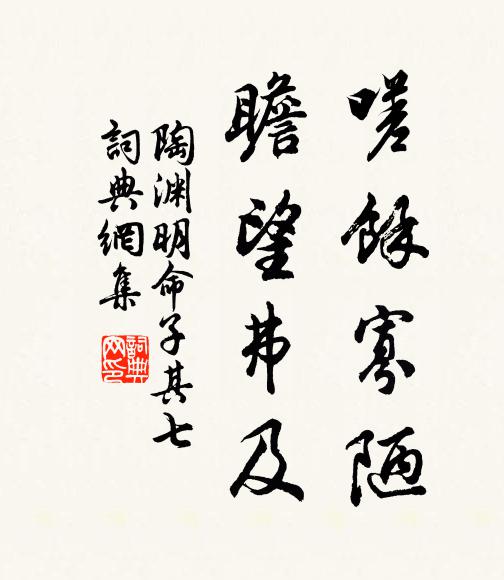 嗟餘寡陋
瞻望弗及
陶淵明命子其七
詞典網集
詞典網印